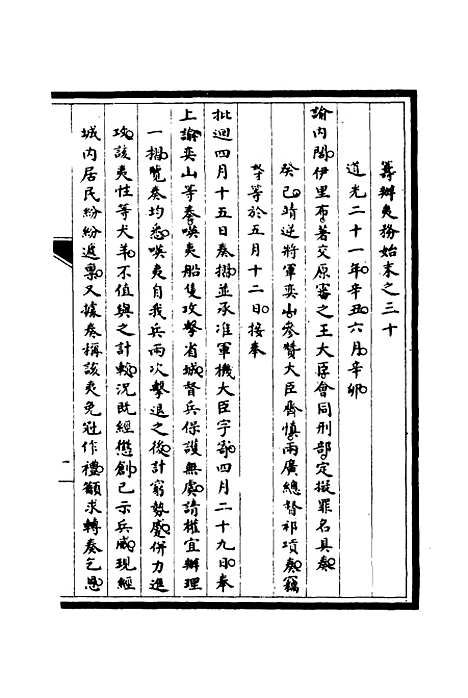 籌辦夷務始末之三十
道光二十一年辛丑六月辛卯
諭内閣伊里布著交原審之王大臣會同刑部定擬罪名具奏
癸巳靖逆將軍奕山參贊大臣齊慎兩廣總督祁𡎴奏竊
等於五月十二日接奉
批迴四月十五日奏摺並承准軍機大臣字寄四月二十九日奉
上諭奕山等奏嘆夷船隻攻擊省城督兵保護無虞請權宜辦理
一摺覽奏均悉嘆夷自我兵兩次擊退之後計窮勢蹙併力進
攻該夷性等犬羊不值與之計較況既經懲創已示兵威現經
城内居民紛紛遞禀又據奏稱該夷免冠作禮籲求轉奏乞恩